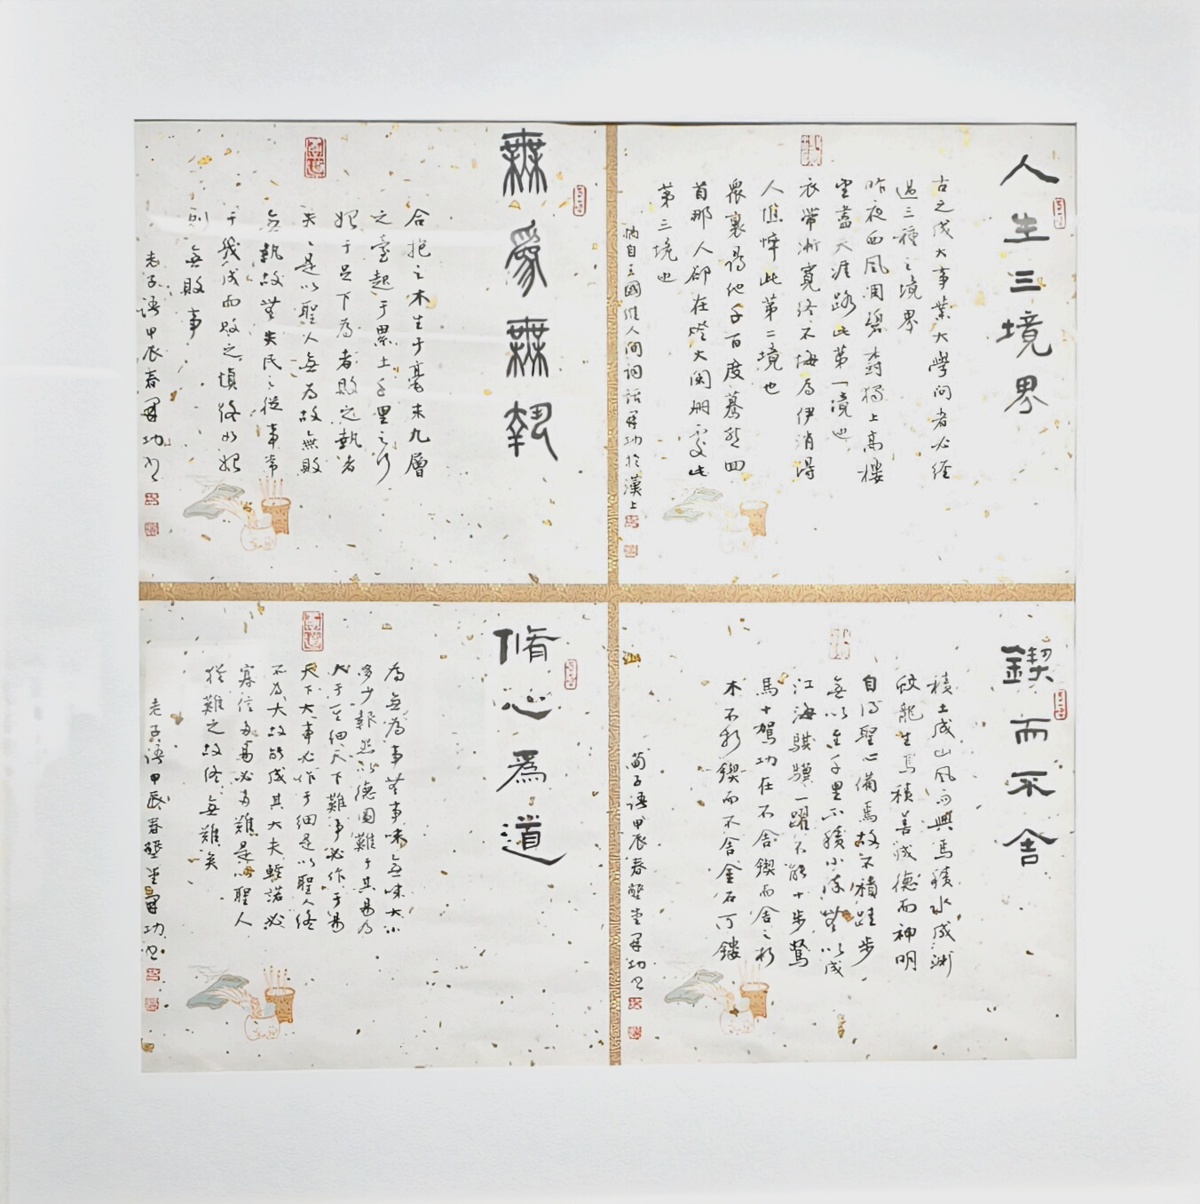 人生三境界
古之成大事業大學问者必经
過三種之境界
昨夜西風凋碧树獨上高樓
望盡天涯路此第一境也
衣带渐寬终不悔為伊消得
人憔悴此第二境也
衆裏尋他千百度蓦然四
首那人卻在燈火阑珊處此
第三境也
摘自王國維人间词话 功於漢上
無爲無執
合抱之木生于毫末九層
之臺起于累土千里之行
始于足下為者败之執者
失之是以聖人無為故無败
無執故無失民之從事常
于幾成而败之慎终如始
则無败事
老子语甲辰春 功
鍥而不舍
積土成山风雨興焉積水成渊
蛟龍生焉積善成德而神明
自得聖心備焉故不積跬步
無以至千里不積小流無以成
江海骐骥一躍不能十步驽
馬十駕功在不舍鍥而舍之朽
木不折鍥而不舍金石可鏤
荀子语甲辰春 堂 功
脩心爲道
為無為事無事味無味大小
多少報怨以德图難于其易為
大于其细天下難事必作于易
天下大事必作于细是以聖人终
不為大故能成其大夫輕諾必
寡信多易必多難是以聖人
猶難之故终無難矣
老子语甲辰春 堂 功